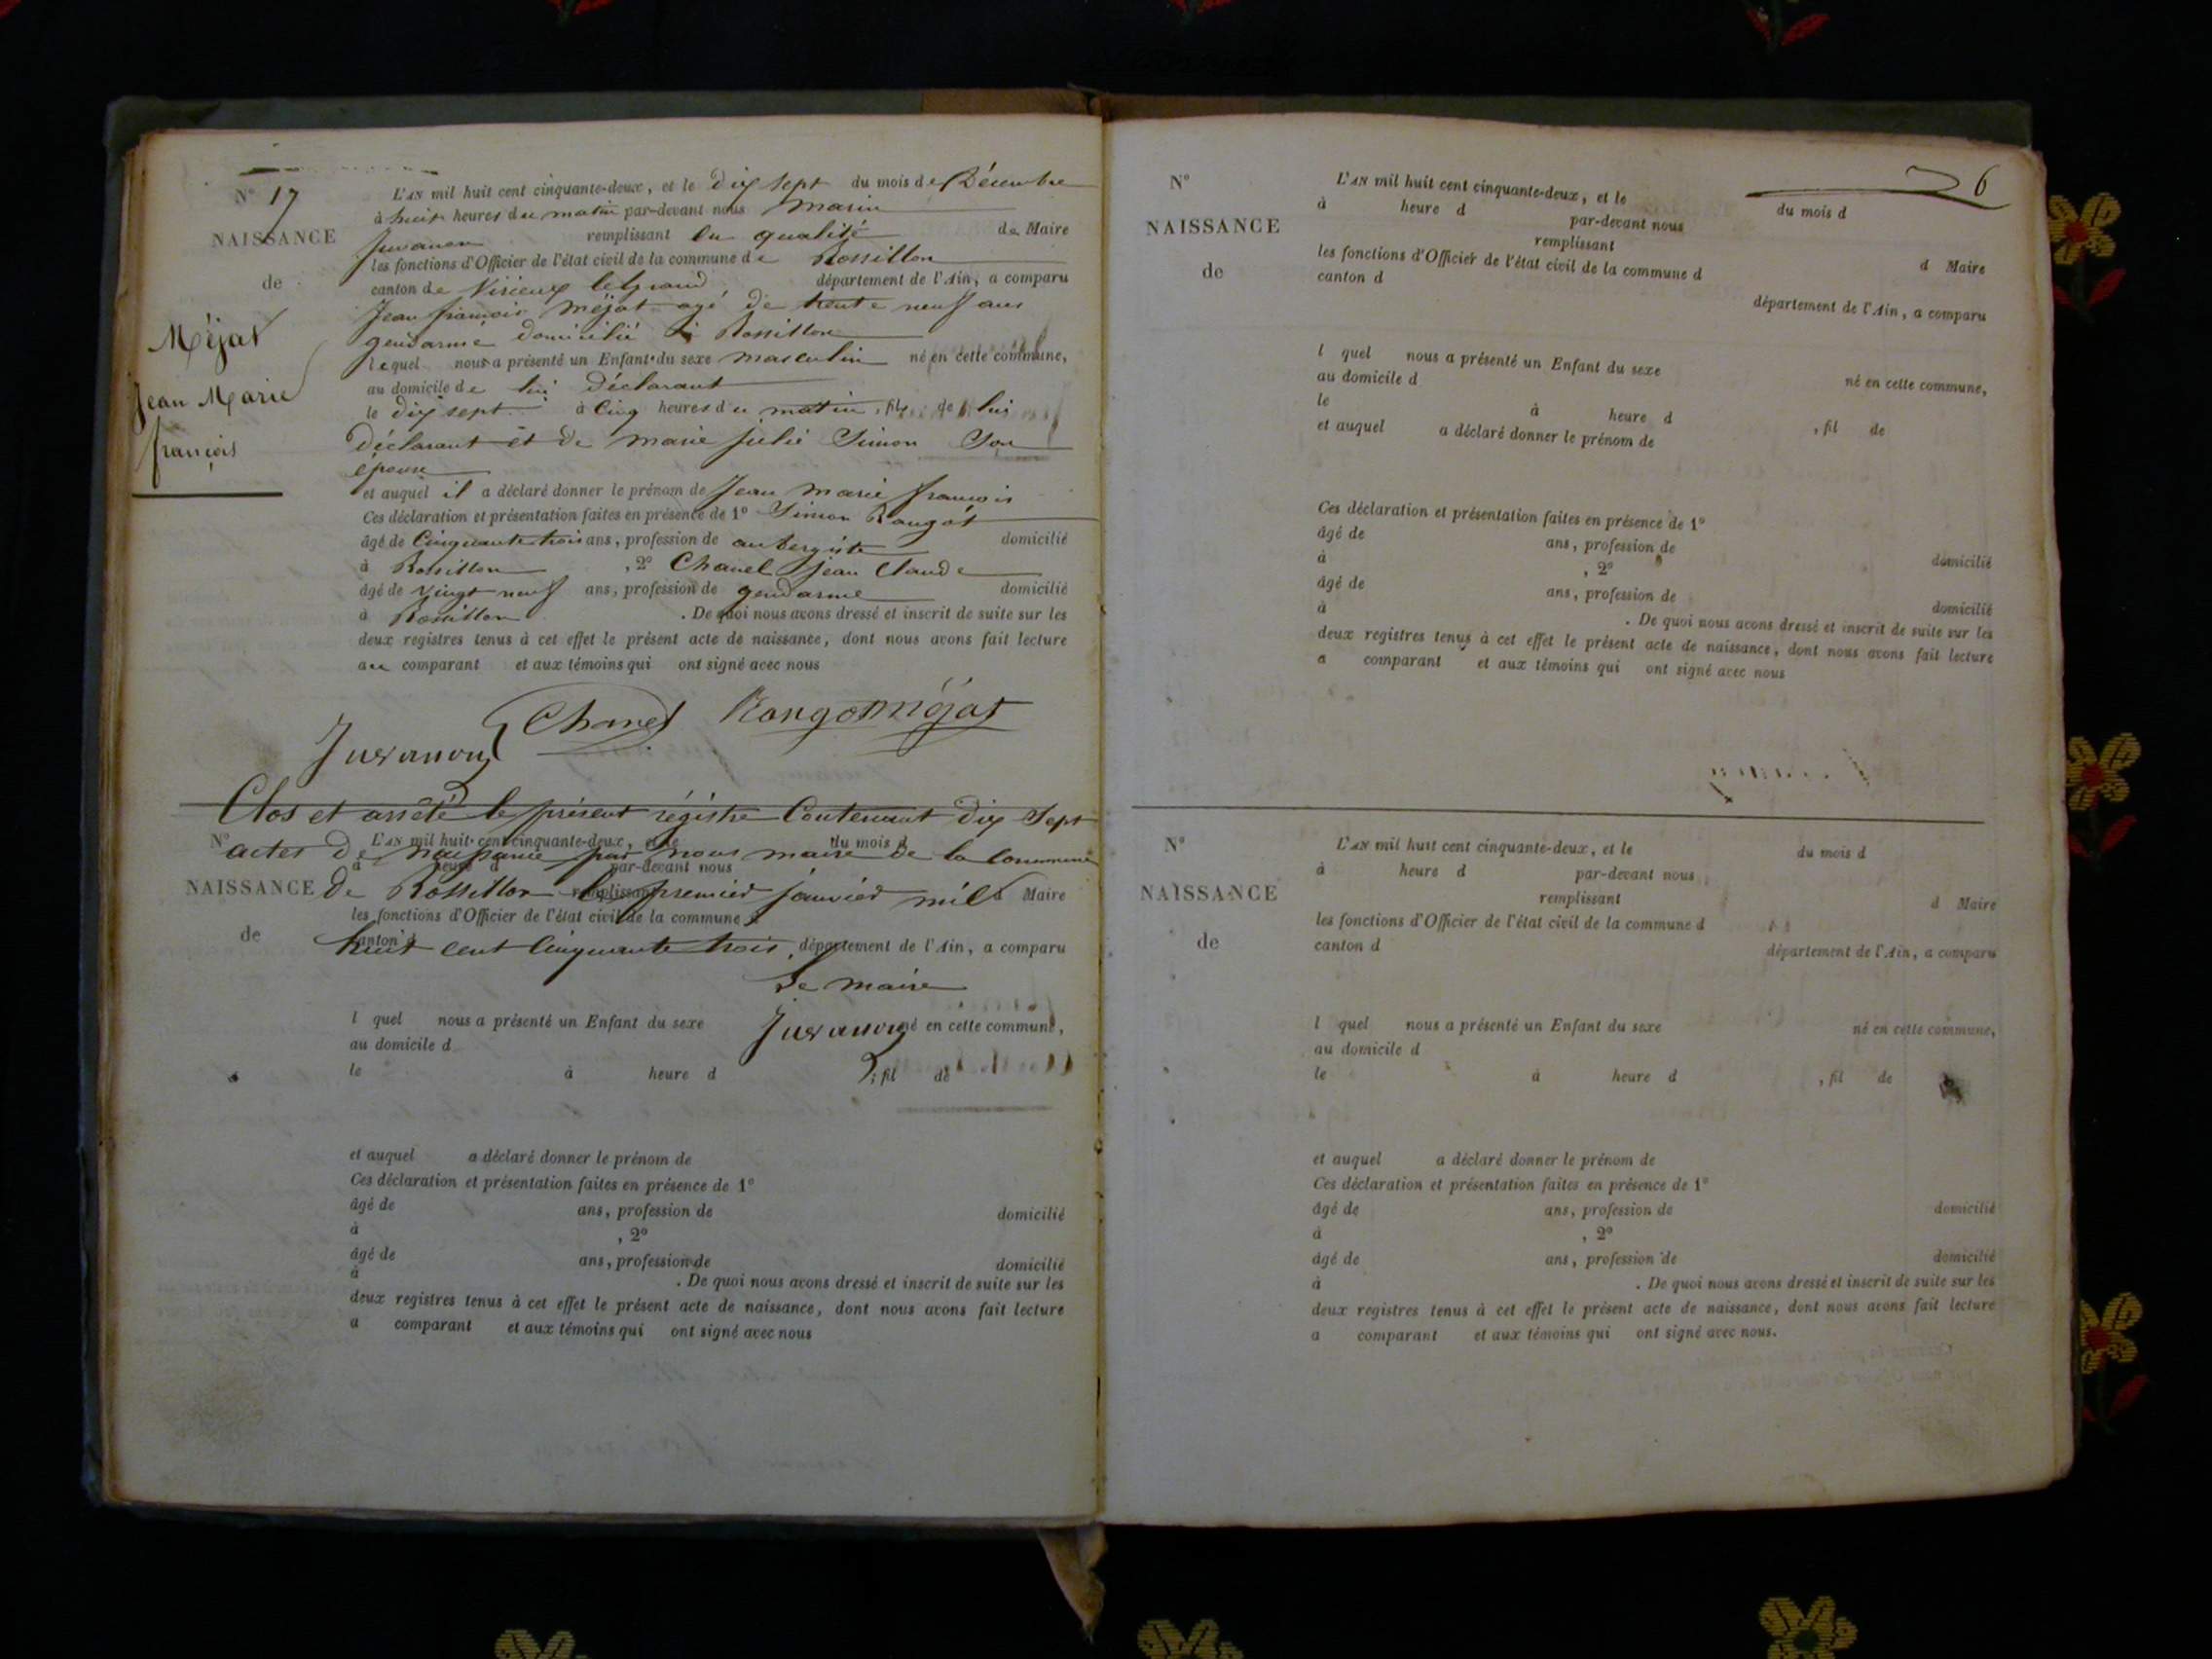 N° 17
NAISSANCE
de
Méjat
Jean Marie
françois
L'AN mil huit cent cinquante-deux, et le dix sept du mois de Décembre
à huit heures du matin par-devant nous marin
Juvanon remplissant en qualité de Maire
les fonctions d'Officier de l'état civil de la commune de Rossillon
canton de Virieux le grand département de l'Ain, a comparu
Jean françois Méjat agé de trente neuf ans
gendarme domicilié à Rossillon
lequel nous a présenté un Enfant du sexe masculin né en cette commune,
au domicile de lui déclarant
le dix sept à Cinq heures du matin, fils de lui
Déclarant et de marie julie Simon Son
épouse
et auquel il a déclaré donner le prénom de Jean marie françois
Ces déclaration et présentation faites en présence de 1° Simon Rougot
âgé de Cinquante trois ans, profession de aubergiste domicilié
à Rossillon, 2° Chanel jean Claude
âgé de vingt neuf ans, profession de gendarme domicilié
à Rossillon. De quoi nous avons dressé et inscrit de suite sur les
deux registres tenus à cet effet le présent acte de naissance, dont nous avons fait lecture
au comparant et aux témoins qui ont signé avec nous
Juvanon Chanel Rougot Méjat
Clos et arrêté le présent régistre Contenant dix Sept
N° L'AN mil huit cent cinquante-deux, et le du mois d
actes de naissance par nous maire de la Commune
à heure d par-devant nous
NAISSANCE
de Rossillon le premier janvier mil
remplissant d Maire
les fonctions d'Officier de l'état civil de la commune d
de
huit cent Cinquante trois
canton d, département de l'Ain, a comparu
Le maire
l quel nous a présenté un Enfant du sexe né en cette commune,
Juvanon
au domicile d
le à heure d, fil de
et auquel a déclaré donner le prénom de
Ces déclaration et présentation faites en présence de 1°
âgé de ans, profession de domicilié
à, 2°
âgé de ans, profession de domicilié
à. De quoi nous avons dressé et inscrit de suite sur les
deux registres tenus à cet effet le présent acte de naissance, dont nous avons fait lecture
a comparant et aux témoins qui ont signé avec nous
6
N°
NAISSANCE
de
L'AN mil huit cent cinquante-deux, et le du mois d
à heure d par-devant nous
remplissant d Maire
les fonctions d'Officier de l'état civil de la commune d
canton d département de l'Ain, a comparu
l quel nous a présenté un Enfant du sexe né en cette commune,
au domicile d
le à heure d, fil de
et auquel a déclaré donner le prénom de
Ces déclaration et présentation faites en présence de 1°
âgé de ans, profession de domicilié
à, 2°
âgé de ans, profession de domicilié
à. De quoi nous avons dressé et inscrit de suite sur les
deux registres tenus à cet effet le présent acte de naissance, dont nous avons fait lecture
a comparant et aux témoins qui ont signé avec nous
N°
NAISSANCE
de
L'AN mil huit cent cinquante-deux, et le du mois d
à heure d par-devant nous
remplissant d Maire
les fonctions d'Officier de l'état civil de la commune d
canton d département de l'Ain, a comparu
l quel nous a présenté un Enfant du sexe né en cette commune,
au domicile d
le à heure d, fil de
et auquel a déclaré donner le prénom de
Ces déclaration et présentation faites en présence de 1°
âgé de ans, profession de domicilié
à, 2°
âgé de ans, profession de domicilié
à. De quoi nous avons dressé et inscrit de suite sur les
deux registres tenus à cet effet le présent acte de naissance, dont nous avons fait lecture
a comparant et aux témoins qui ont signé avec nous.